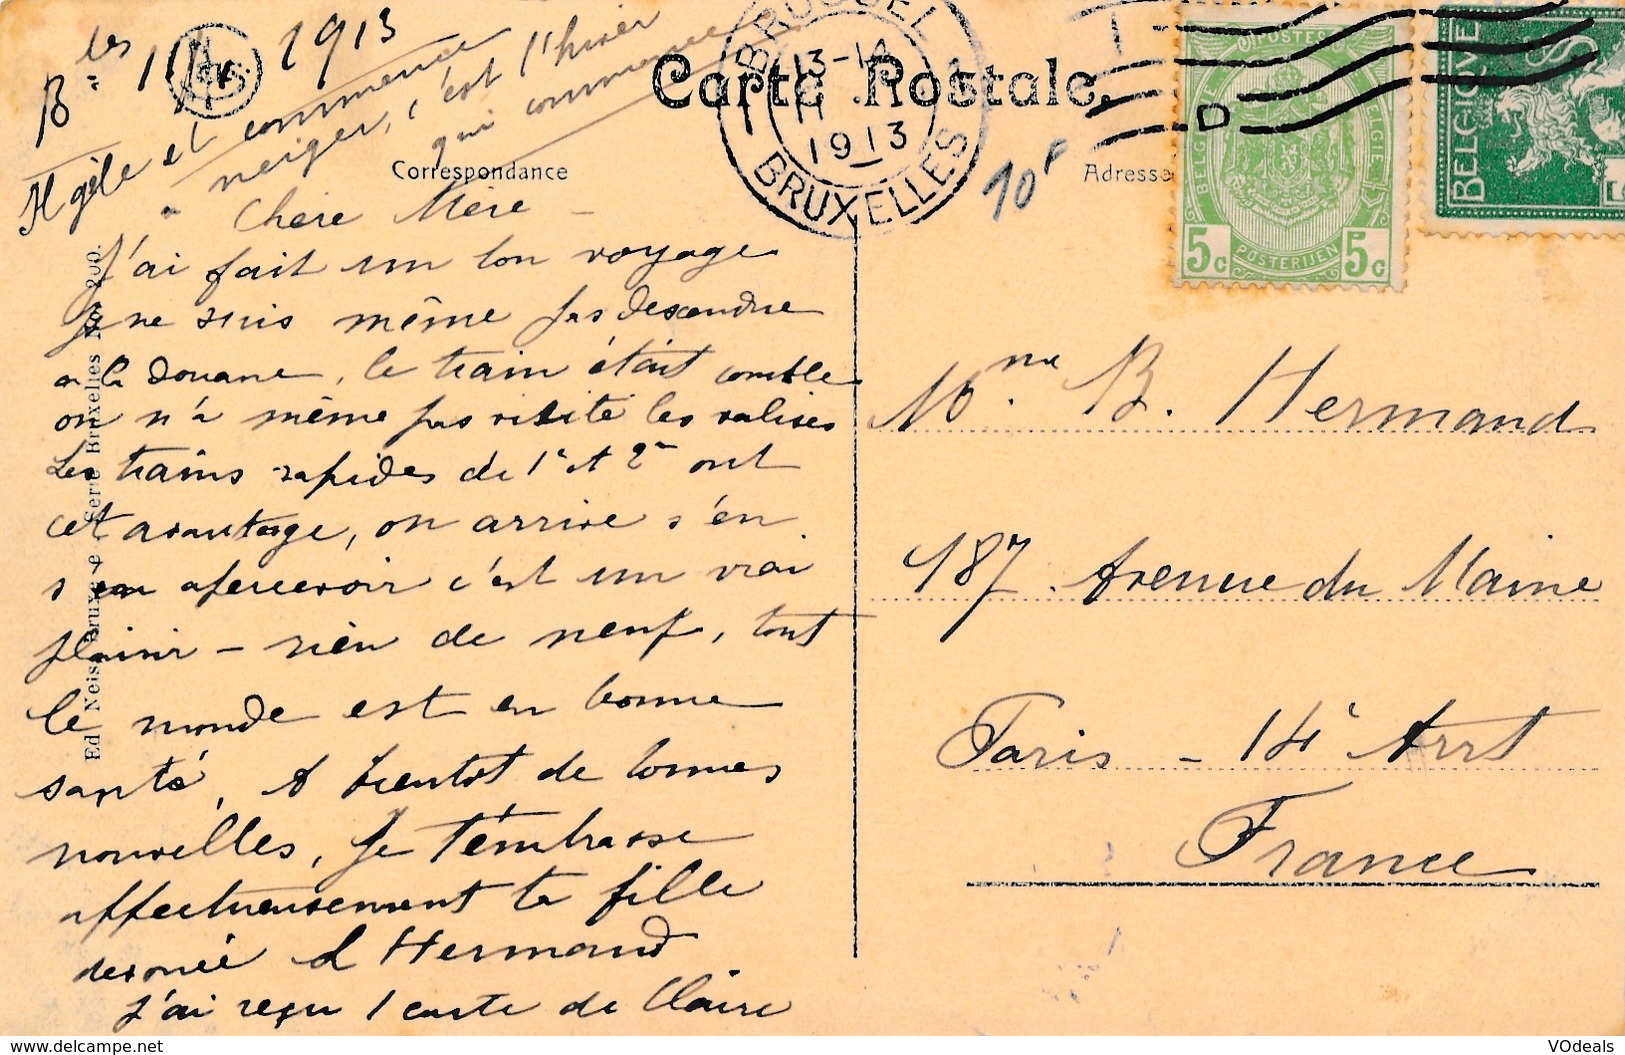 B.les 1913
Il gèle et commence
neiger, c'est l'hiver
qui commence
Carte Postale
Correspondance
Adresse
BRUSSEL
13-14
1913
BRUXELLES
10F
BELGIQUE
POSTES
BELGIE
5c
POSTERIJEN
5c
BELGIQUE
5
Chère Mère –
J'ai fait un bon voyage
je ne suis même pas descendue
a la douane, le train était comble
on n'a même pas visité les valises
Les trains rapides de 1e et 2e ont
cet avantage, on arrive s'en
s'en apercevoir c'est un vrai
plaisir – rien de neuf, tout
le monde est en bonne
santé, A bientot de bonnes
nouvelles, Je t'embrasse
affectueusement ta fille
devouée Hermand
J'ai reçu 1 carte de Claire
Mme B. Hermand
187 Avenue du Maine
Paris – 14è Arrt
France
VOdeals
www.delcampe.net